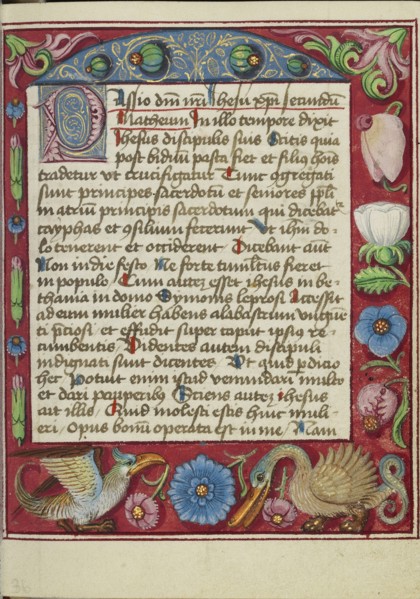 Passio dm̄ nr̄i Jhesu xp̄i secundū
Matheum In illo tempore dixit
Jhesus discipulis suis Scitis quia
post biduū pasca fiet et filiꝰ hōis
tradetur ut crucifigatur Tunc ɔgregati
sunt principes sacerdotū et seniores ppl̄i
in atriū principis sacerdotum qui dicebatr
cayphas et ɔsilium fecerunt Ut ihm̄ do-
lo tenerent et occiderent Dicebant aūt
Non in die festo Ne forte tumultus fieret
in populo Cum autez esset ihesus in be-
thania in domo Symonis leprosi Accessit
ad eum mulier habens alabastrum unguē-
ti p̄ciosi et effudit super caput ipsiꝰ re-
cumbentis Videntes autem discipuli
indignati sunt dicentes Ut quid pditio
hec Potuit enim istud venundari multo
et dari pauperibꝫ Sciens autez ihesus
ait illis Quid molesti estis huic muli-
eri Opus bonū operata est in me Nam
36